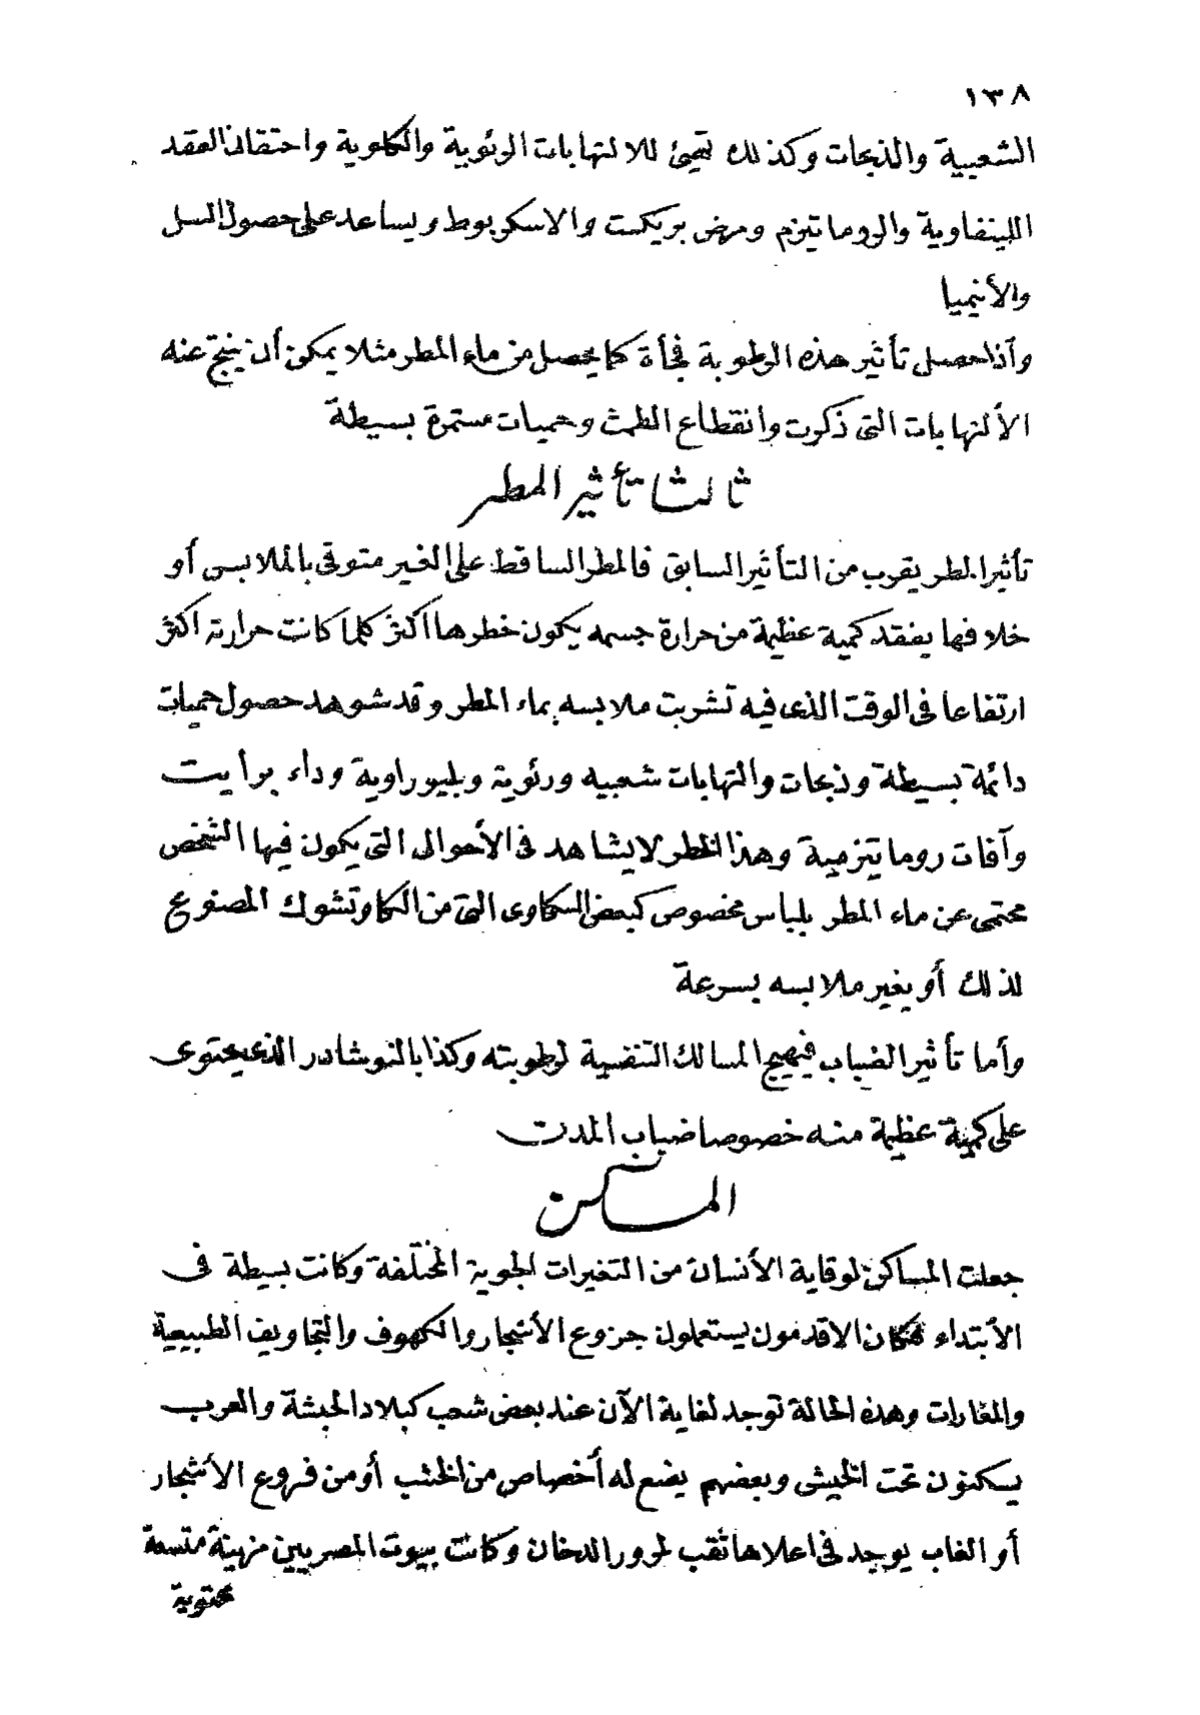 ١٣٨
الشعبية والذبحات وكذلك تهيئ للالتهابات الرئوية والكلوية واحتقان العقد
اللينفاوية والروماتيزم ومرض بريكت والاسكربوط ويساعد على حصول السل
والأنيميا
وآذا حصل تأثير هذه الرطوبة فجأة كما يحصل من ماء المطر مثلا يمكن أن ينتج عنه
الألتهابات التى ذكرت وانقطاع الطمث وحميات مستمرة بسيطة
ثالثا تأثير المطر
تأثير المطر يقرب من التأثير السابق فالمطر الساقط على الغير متوقى بالملابس أو
خلافها يفقد كمية عظيمة من حرارة جسمه يكون خطرها أكثر كلما كانت حرارته اكثر
ارتفاعا فى الوقت الذى فيه تشربت ملابسه بماء المطر وقد شوهد حصول حميات
دائمة بسيطة وذبحات والتهابات شعبيه ورئوية وبليوراوية وداء برايت
وآفات روماتزمية وهذا الخطر لا يشاهد فى الأحوال التى يكون فيها الشخص
محتمى عن ماء المطر بلباس مخصوص كبعض السكاوى التى من الكاوتشوك المصنوع
لذلك أو يغير ملابسه بسرعة
وأما تأثير الضباب فيهيج المسالك التنفسية لرطوبته وكذا بالنوشادر الذى يحتوى
على كمية عظيمة منه خصوصا ضباب المدن
المساكن
جعلت المساكن لوقاية الأنسان من التغيرات الجوية المختلفة وكانت بسيطة فى
الأبتداء فكان الاقدمون يستعملون جزوع الأشجار والكهوف والتجاويف الطبيعية
والمغارات وهذه الحالة توجد لغاية الآن عند بعض شعب كبلاد الحبشة والعرب
يسكنون تحت الخيش وبعضهم يضع له أخصاص من الخشب أو من فروع الأشجار
أو الغاب يوجد فى اعلاها ثقب لمرور الدخان وكانت بيوت المصريين مزينة متسعة
محتوية